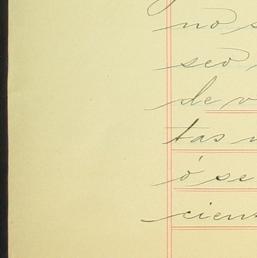 no s
seo
de v
tas
ó se
cient